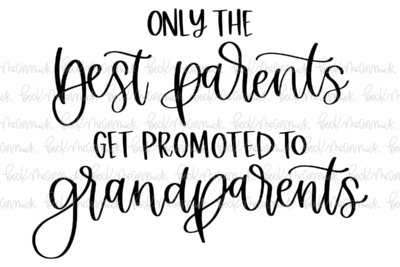 ONLY THE
best parents
GET PROMOTED TO
grandparents